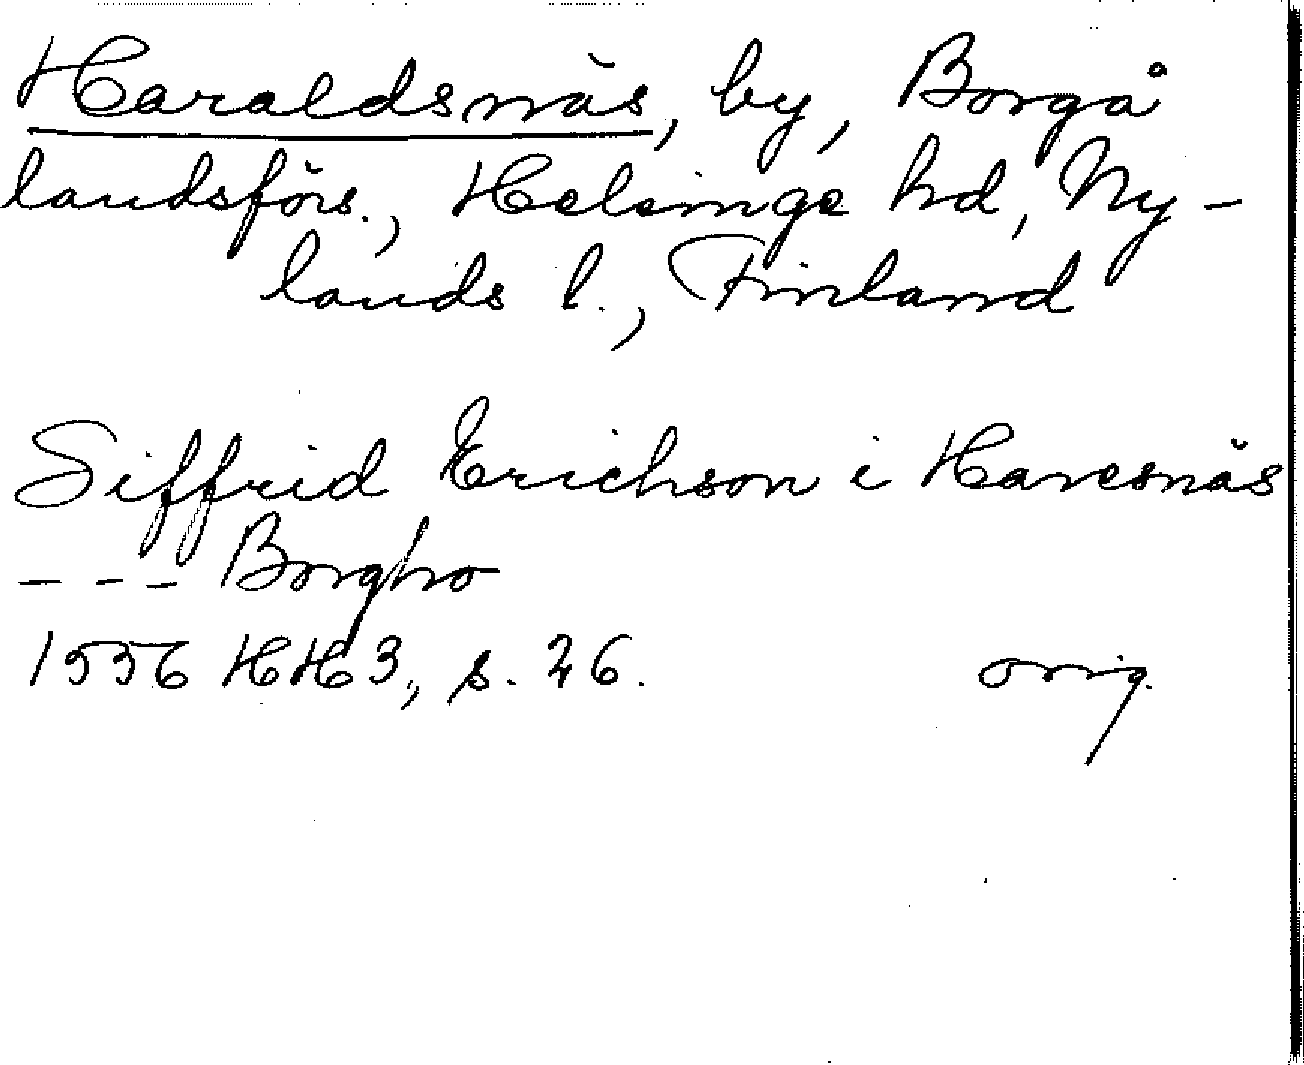 Haraldsnäs, by, Borgå
landsförs., Helsinge hd, Ny-
lands l., Finland
Siffrid Erichson i Haresnäs
--- Borgho
1556 HH3, s. 26.
orig.